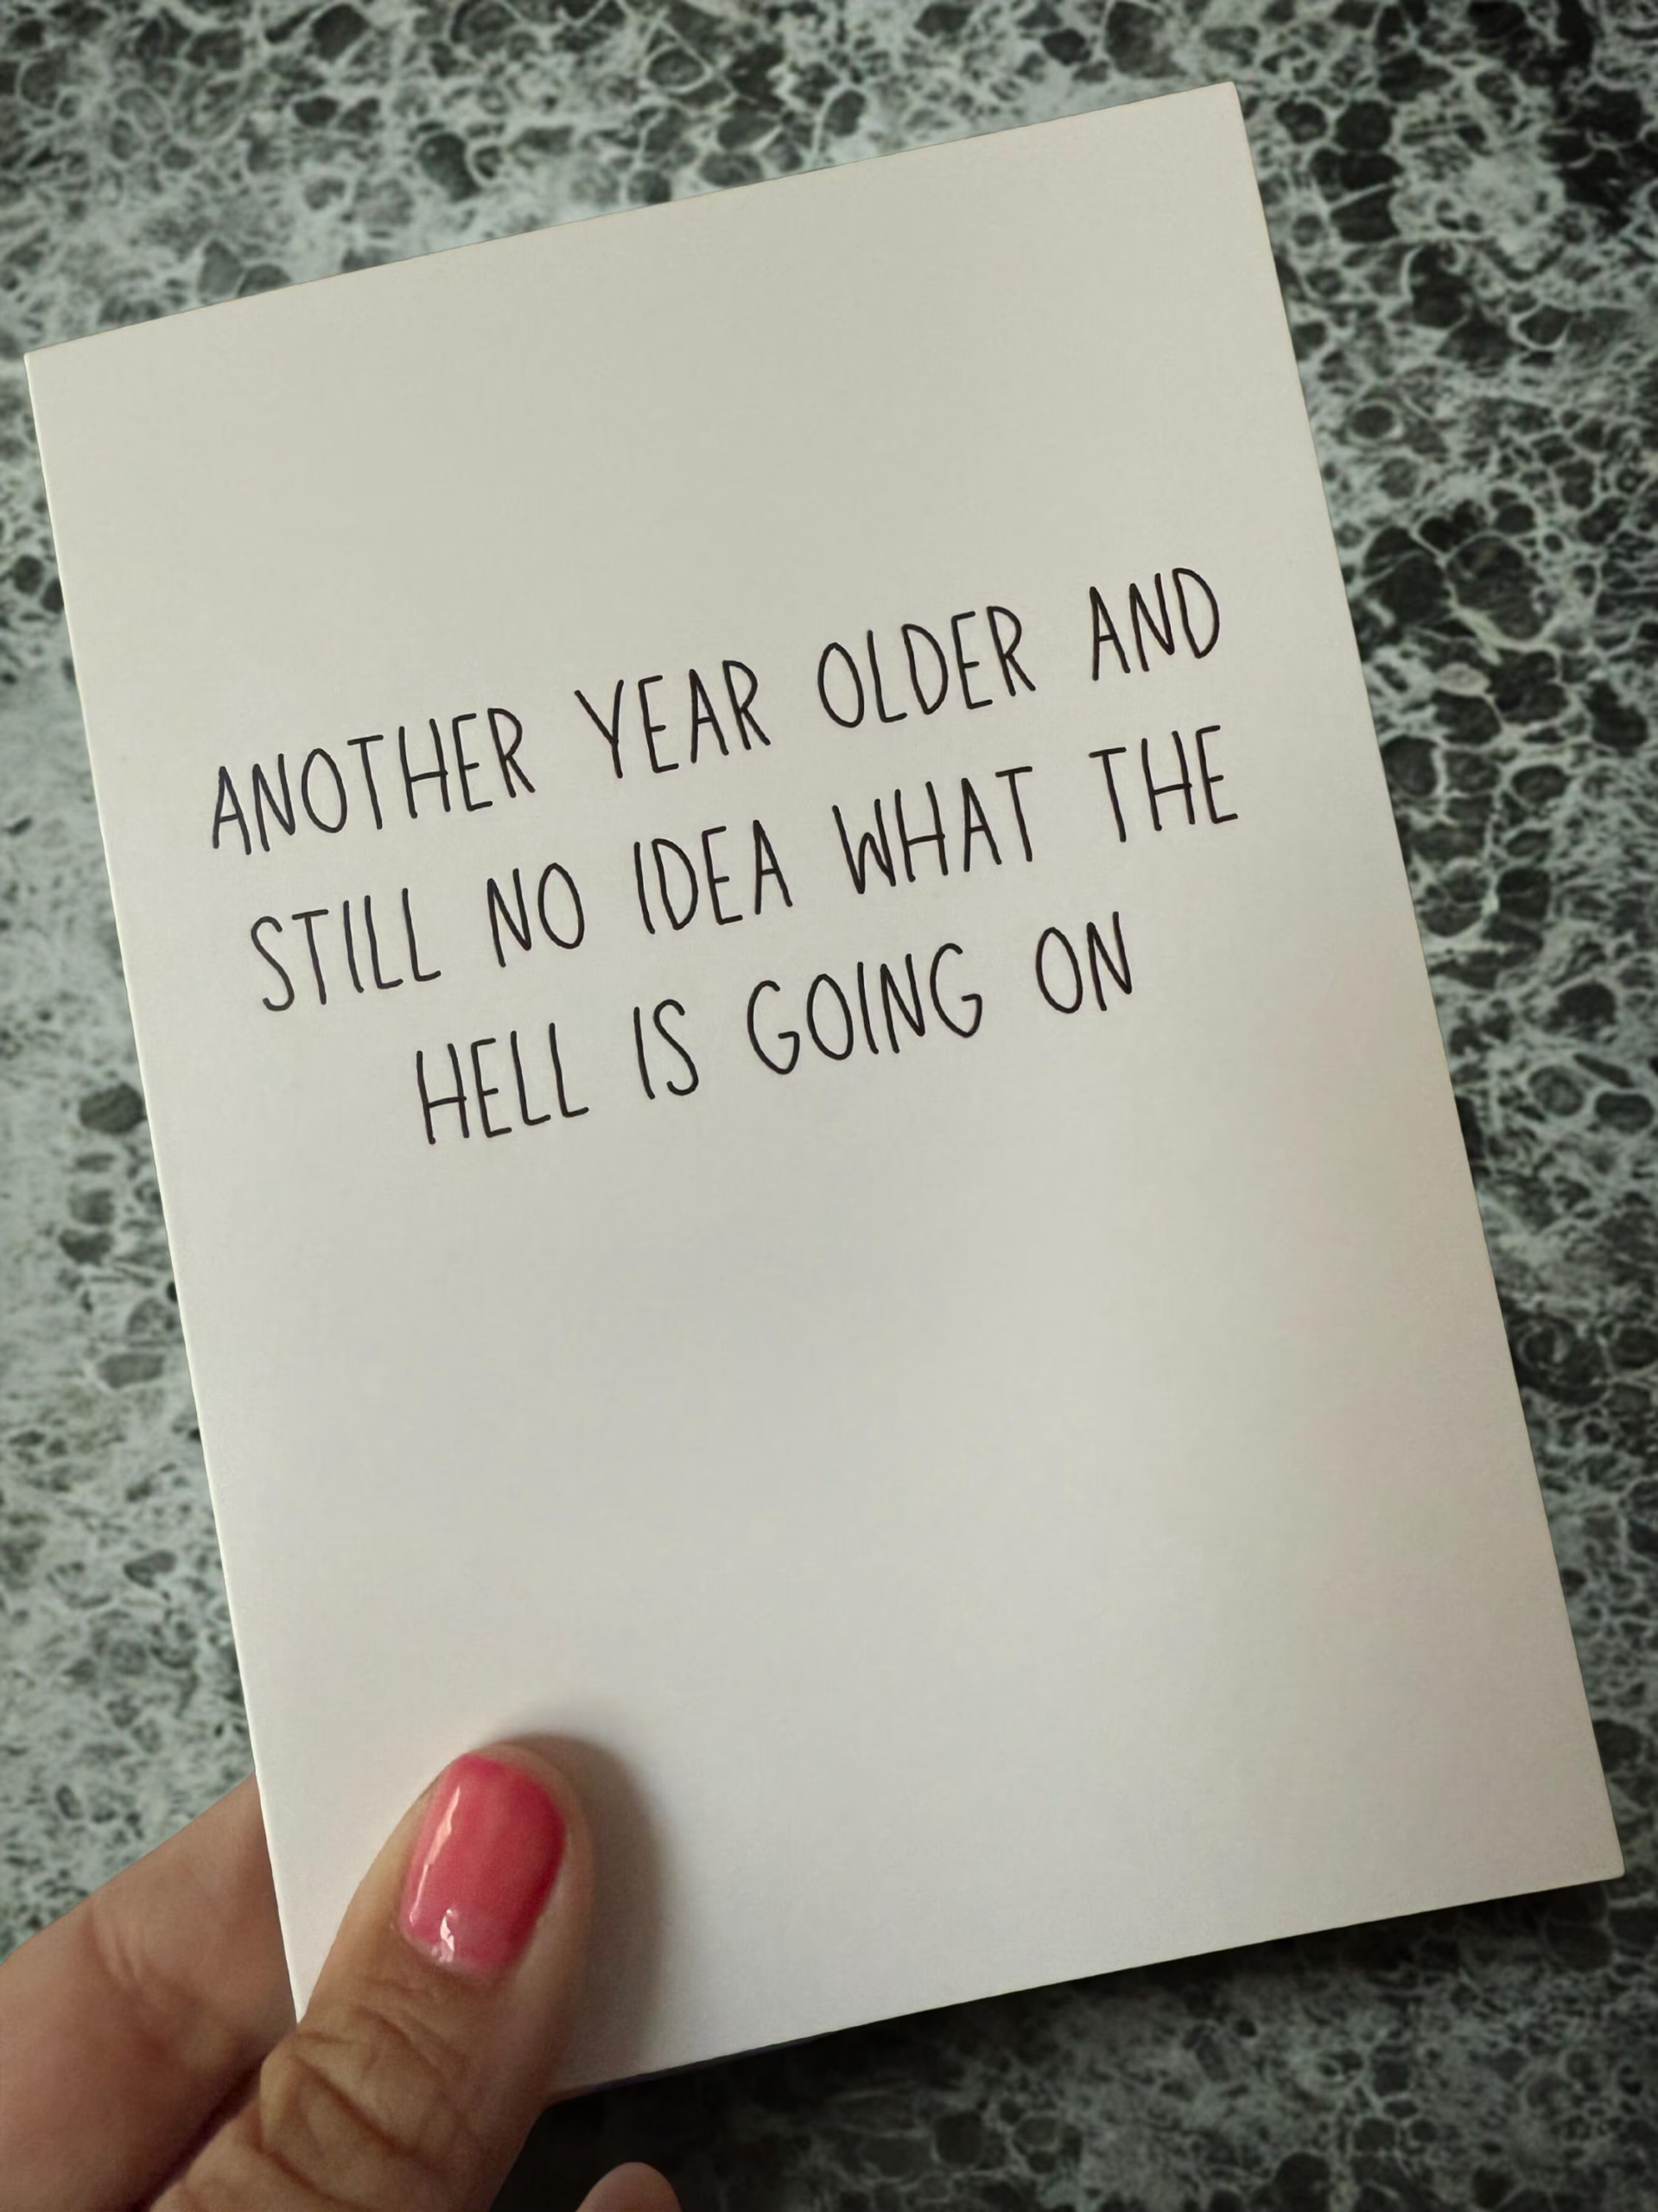 ANOTHER YEAR OLDER AND
STILL NO IDEA WHAT THE
HELL IS GOING ON